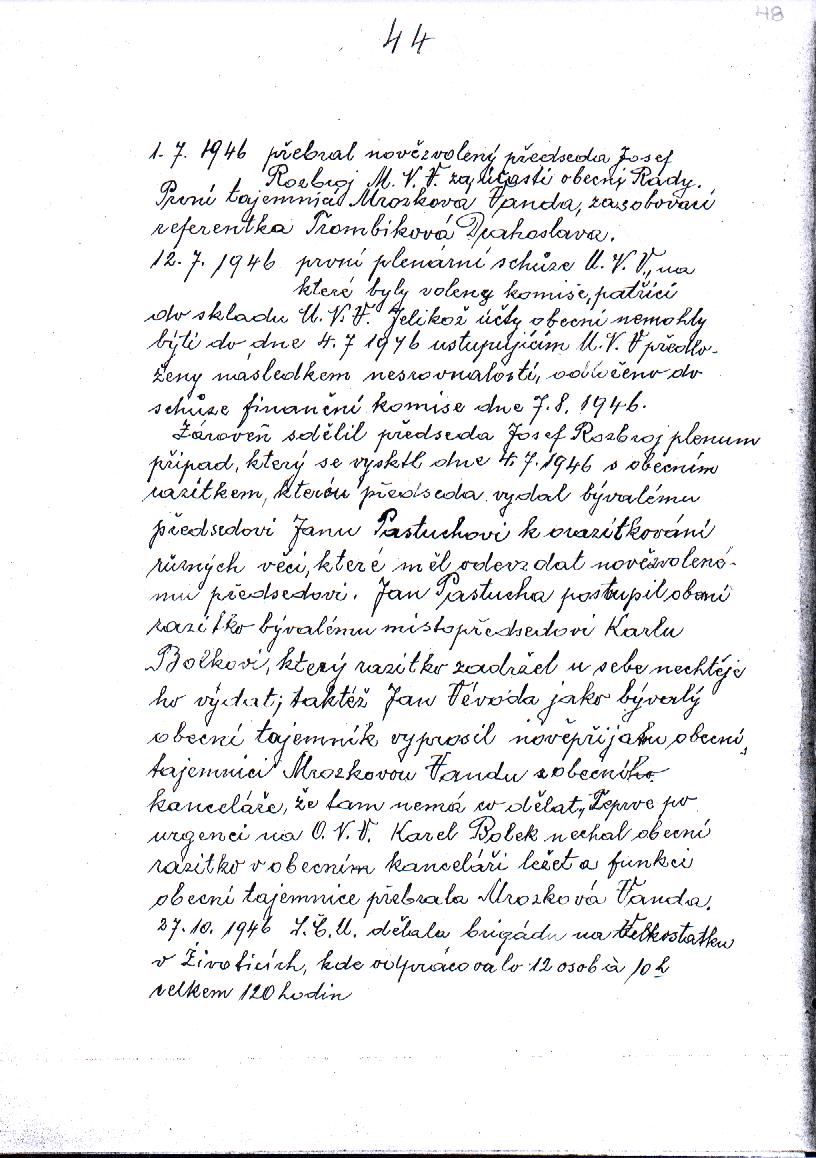 48
44
1. 7. 1946 přebral nověזvolený předseda Josef
Rozbroj M. V. V. za účasti obecný Rady.
První tajemnicí Mrozkova Vanda, zasobovací
referentka Trombiková Drahoslava.
12. 7. 1946 první plenární schůze M. V. V., na
které byly voleny komise, patřící
do skladu M. V. V. Jelikož účty obecní nemohly
býti do dne 4. 7 1946 ustupujícím M. V. V předlo-
ženy následkem nesrovnalostí, odločeno do
schůze finanční komise dne 7. 8. 1946.
Zároveň sdělil předseda Josef Rozbroj plenum
případ, který se vysktl dne 4. 7. 1946 s obecním
razítkem, kterou předseda vydal bývalému
předsedovi Janu Pastuchovi k orazítkování
různých věcí, které měl odevzdat nověזvolené-
mu předsedovi. Jan Pastucha postupil obecní
razítko bývalému místopředsedovi Karlu
Bolkovi, který razítko zadržel u sebe nechtěje
ho vydat; taktéž Jan Vévoda jako bývalý
obecní tajemník vyprosil nověpřijatou obecní,
tajemnici Mrozkovou Vandu z obecního
kanceláře, že tam nemá co dělat, Teprve po
urgenci na O. V. V. Karel Bolek nechal obecní
razítko v obecním kanceláři ležet a funkci
obecní tajemnice přebrala Mrozková Vanda.
27. 10. 1946 S. Č. M. dělala brigádu na Velkostatku
v Životicích, kde odpracovalo 12 osob à 10 h
celkem 120 hodin